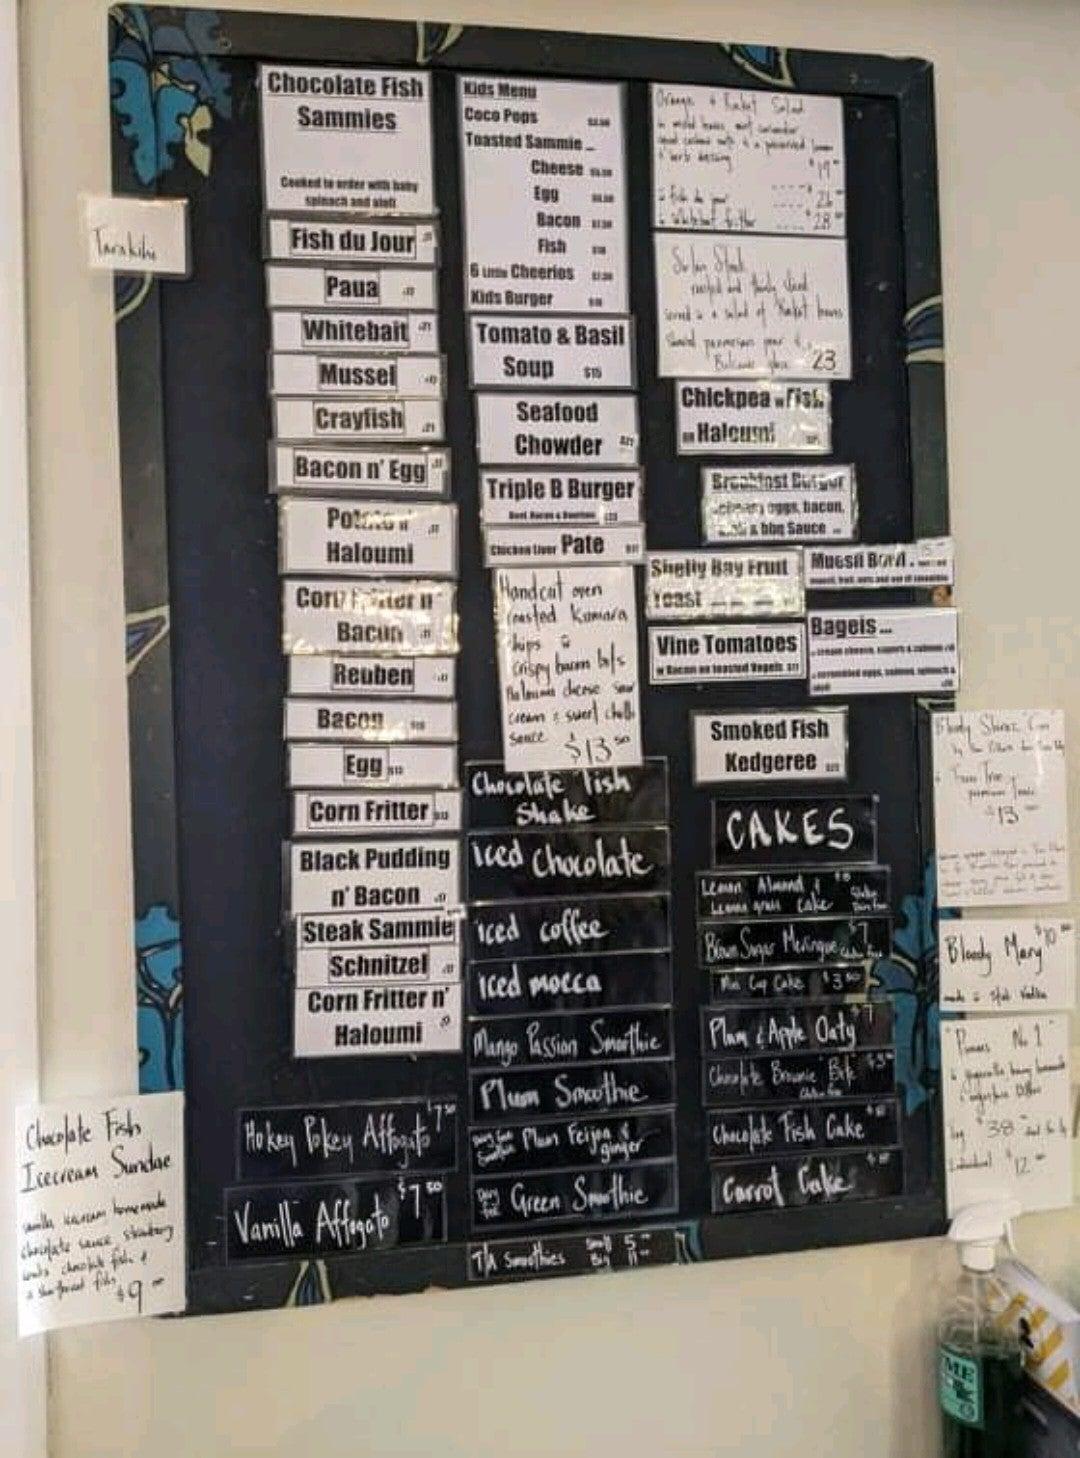 Tarakihi
Chocolate Fish
Sammies
Cooked to order with baby
spinach and aioli
Fish du Jour
Paua
Whitebait
Mussel
Crayfish
Bacon n' Egg
Potato n'
Haloumi
Corn Fritter n'
Bacon
Reuben
Bacon
Egg $13
Corn Fritter
Black Pudding
n' Bacon
Steak Sammie
Schnitzel
Corn Fritter n'
Haloumi
Hokey Pokey Affogato $7.50
Vanilla Affogato $7.50
Chocolate Fish
Icecream Sundae
vanilla icecream homemade
chocolate sauce strawberry
chocolate fish &
a shortbread fish
$9.00
Kids Menu
Coco Pops
Toasted Sammie ...
Cheese
Egg
Bacon
Fish $10
6 Little Cheerios
Kids Burger $10
Tomato & Basil
Soup $15
Seafood
Chowder
Triple B Burger
Beef, Bacon &
Chicken Liver Pate
Handcut oven
roasted Kumara
chips
crispy bacon bits
Haloumi cheese sour
cream & sweet chilli
sauce $13.50
Chocolate Fish
Shake
Iced Chocolate
Iced coffee
Iced mocca
Mango Passion Smoothie
Plum Smoothie
Plum Feijoa &
ginger
Green Smoothie
T/A Smoothies Small 5
Big 11
Orange & Rocket Salad
$19
fish du jour $26
Whitebait fritter $28
served a salad of Rocket leaves
parmesan
23
Chickpea w Fish
or Haloumi
Breakfast Burger
eggs, bacon,
& bbq Sauce
Shelly Bay Fruit
Toast
Muesli Bowl
Vine Tomatoes
w Bacon on toasted Vogels
Bagels ...
cream cheese, capers & salmon
scrambled eggs, salmon, spinach &
aioli
Smoked Fish
Kedgeree
CAKES
Lemon Almond &
Lemon grass Cake
Brown Sugar Meringue $7
Mini Cup Cake $3.50
Plum & Apple Oaty $7
Chocolate Brownie Bite
Gluten free
Chocolate Fish Cake
Carrot Cake
Bloody Shiraz Gin
& Fever Tree
premium tonic
$13
Bloody Mary $10
made Vodka
Pimms No 1
Jug $38
Individual $12